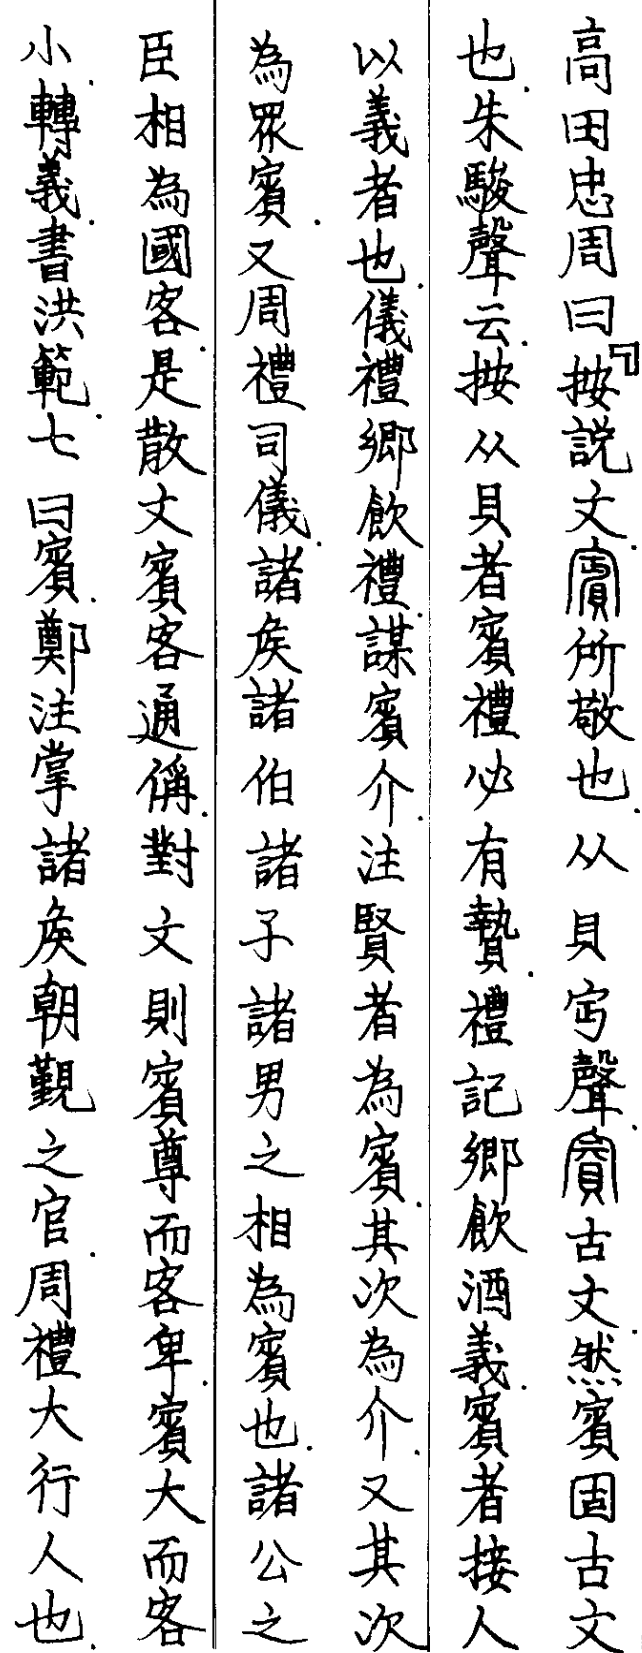 高田忠周曰「按說文賓所敬也从貝宀聲賓古文然賓固古文
也朱駿聲云按从貝者賓禮必有贄禮記鄉飲酒義賓者接人
以義者也儀禮鄉飲禮謀賓介注賢者為賓其次為介又其次
為眾賓又周禮司儀諸矦諸伯諸子諸男之相為賓也諸公之
臣相為國客是散文賓客通偁對文則賓尊而客卑賓大而客
小轉義書洪範七曰賓鄭注掌諸矦朝覲之官周禮大行人也